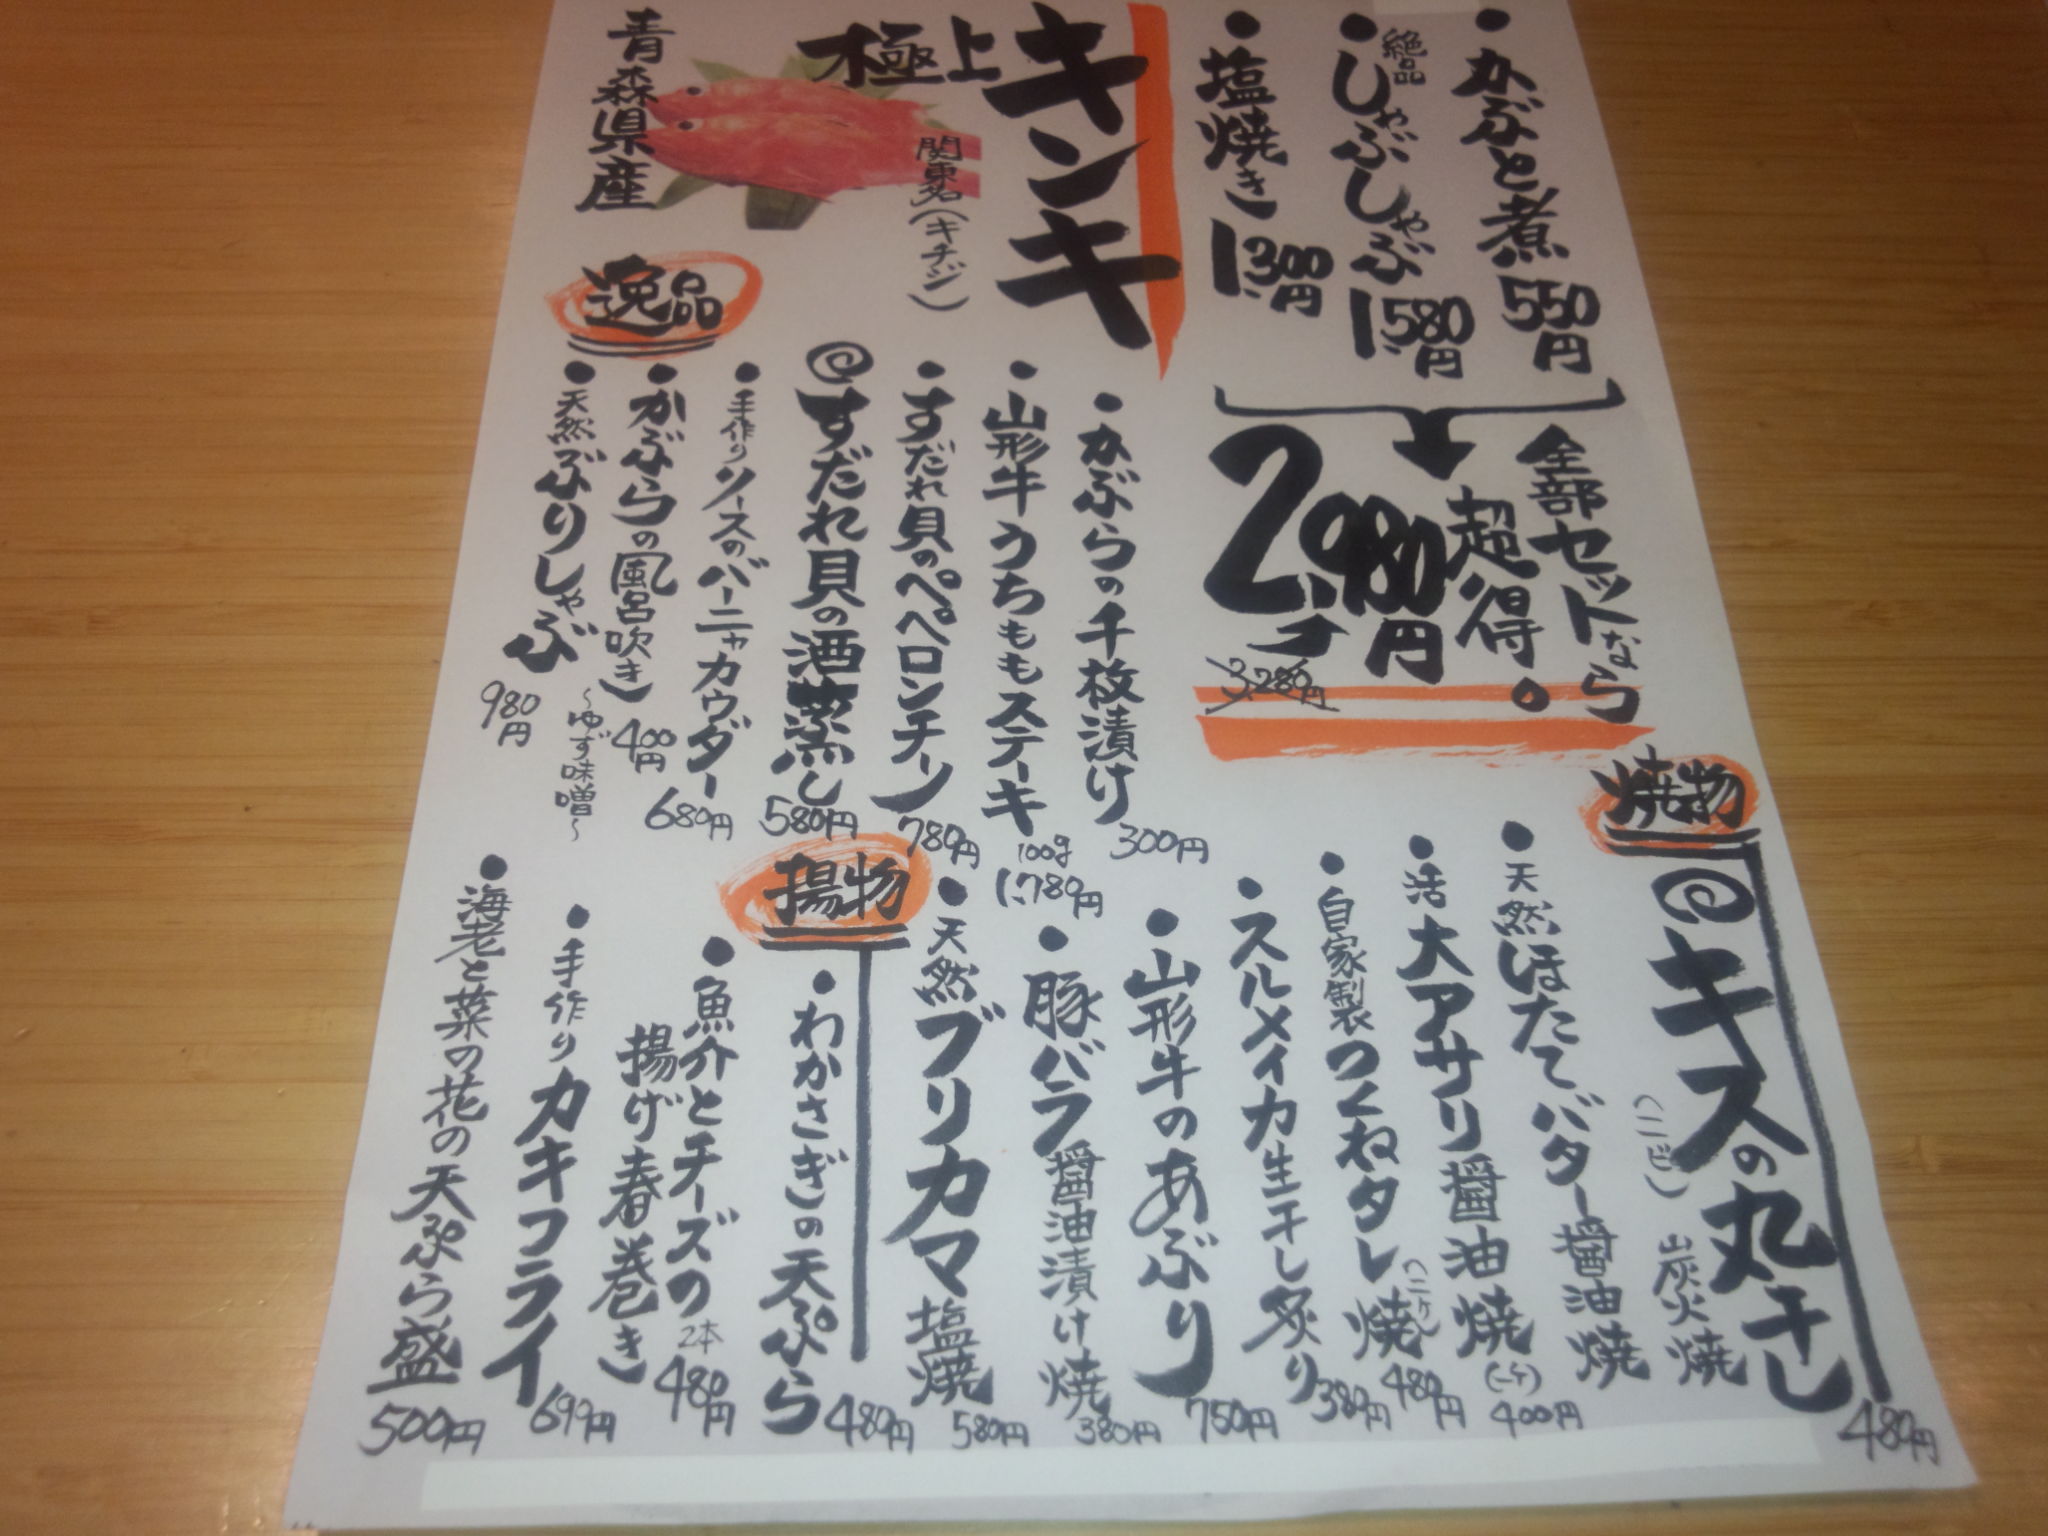 ・かぶと煮 550円
・絶品しゃぶしゃぶ 1,580円
・塩焼き 1,300円
全部セットなら
超得。
2,980円
3,280円
キンキ
極上
関東名(キチジ)
青森県産
逸品
・かぶらの千枚漬け 300円
・山形牛うちももステーキ 100g 1,780円
・すだれ貝のペペロンチーノ 780円
すだれ貝の酒蒸し 580円
・手作りソースのバーニャカウダー 680円
・かぶらの風呂吹き 400円
〜ゆず味噌〜
・天然ぶりしゃぶ 980円
焼物
キスの丸干し 480円
(二ビ) 炭火焼
・天然ほたてバター醤油焼
・活大アサリ醤油焼(一ケ) 400円
・自家製つくねタレ焼(二ケ) 480円
・スルメイカ生干し炙り 380円
・山形牛のあぶり 750円
・豚バラ醤油漬け焼 380円
・天然ブリカマ塩焼 580円
揚物
・わかさぎの天ぷら 480円
・魚介とチーズの
揚げ春巻き 2本 480円
・手作りカキフライ 699円
・海老と菜の花の天ぷら盛 500円